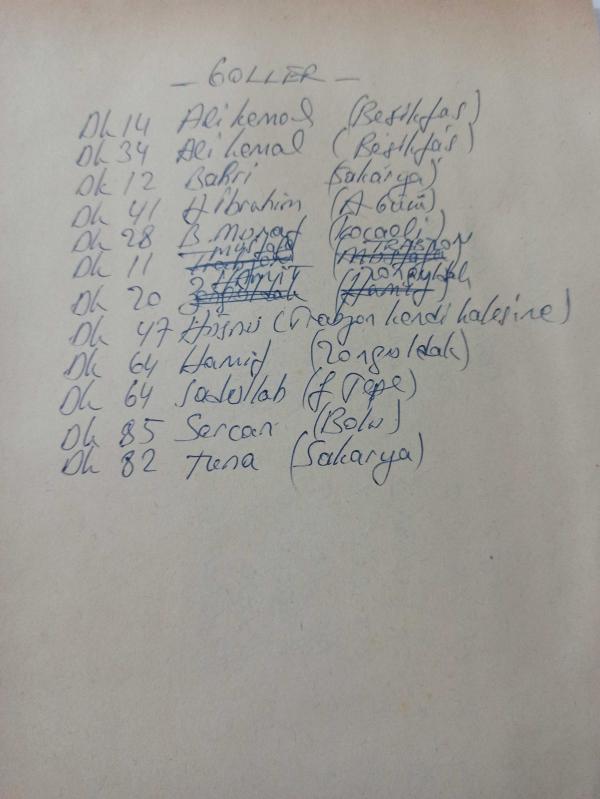 - GOLLER -
Dk 14 Ali Kemal (Beşiktaş)
Dk 34 Ali Kemal (Beşiktaş)
Dk 12 Bahri (Sakarya)
Dk 41 H İbrahim (A Gücü)
Dk 28 B. Murat (Kocaeli)
Dk 11 Mustafa (TRABZON
Dk 20 HAMİT (Zonguldak
Dk 47 Hüsnü (Trabzon kendi kalesine)
Dk 64 Hamid (Zonguldak)
Dk 64 Sadullah (f Tepe)
Dk 85 Sercan (Bolu)
Dk 82 Tuna (Sakarya)